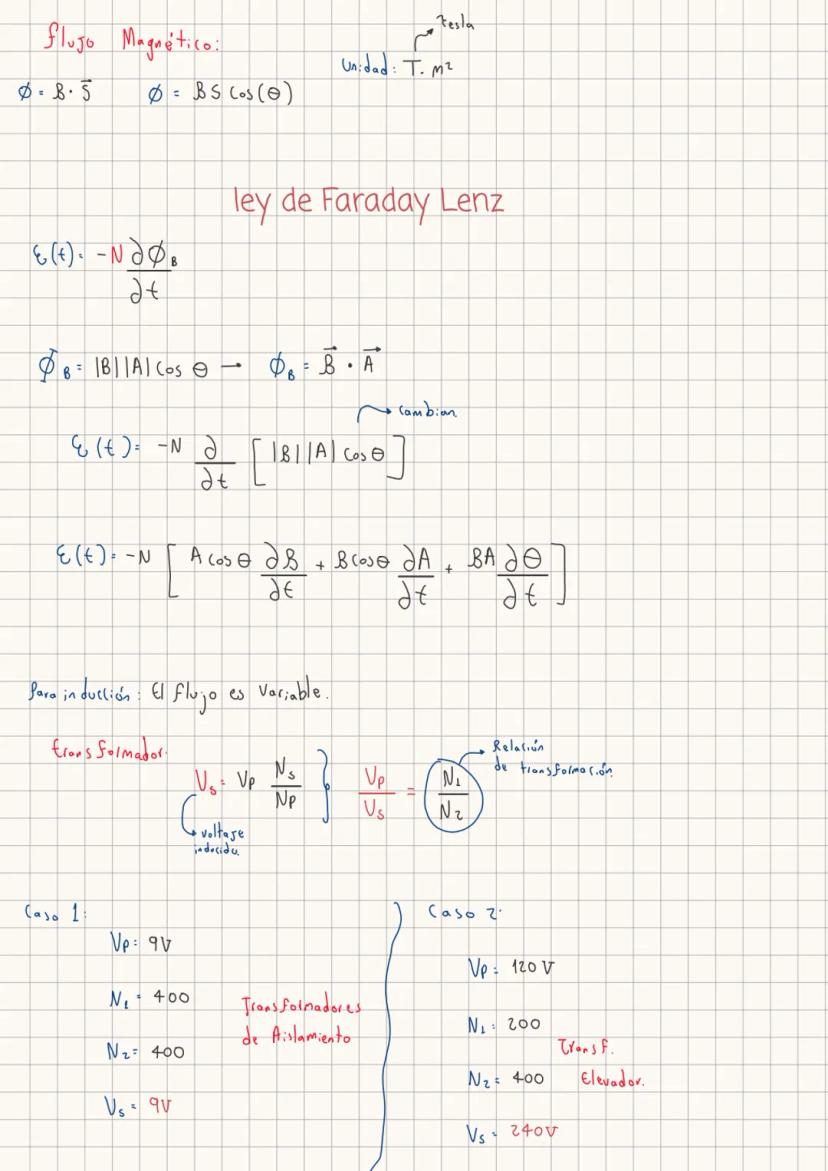 flujo Magnético:
tesla
Unidad: T. m²
ϕ = B · S⃗    ϕ = B S Cos(θ)
ley de Faraday Lenz
ε(t) = -N ∂ϕ_B / ∂t
ϕ_B = |B||A| Cos θ → ϕ_B = B⃗ · A⃗
cambian
ε(t) = -N ∂/∂t [|B||A| cos θ]
ε(t) = -N [A cos θ ∂B/∂t + B cos θ ∂A/∂t + BA ∂θ/∂t]
Para inducción: El flujo es Variable.
transformador.
Vs = Vp Ns/Np } Vp/Vs = N₁/N₂
Relación
de transformación.
voltaje
inducido.
Caso 1:
Vp = 9V
N₁ = 400
N₂ = 400
Vs = 9V
Transformadores
de Aislamiento
Caso 2:
Vp = 120 V
N₁ = 200
N₂ = 400
Vs = 240V
Transf.
Elevador.